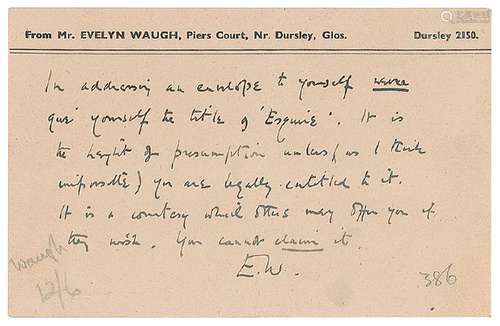 From Mr. EVELYN WAUGH, Piers Court, Nr. Dursley, Glos. Dursley 2150.
In addressing an envelope to yourself never
give yourself the title of 'Esquire'. It is
the height of presumption unless (as I think
impossible) you are legally entitled to it.
It is a courtesy which others may offer you if
they wish. You cannot claim it.
E.W.
Waugh
12/6
386